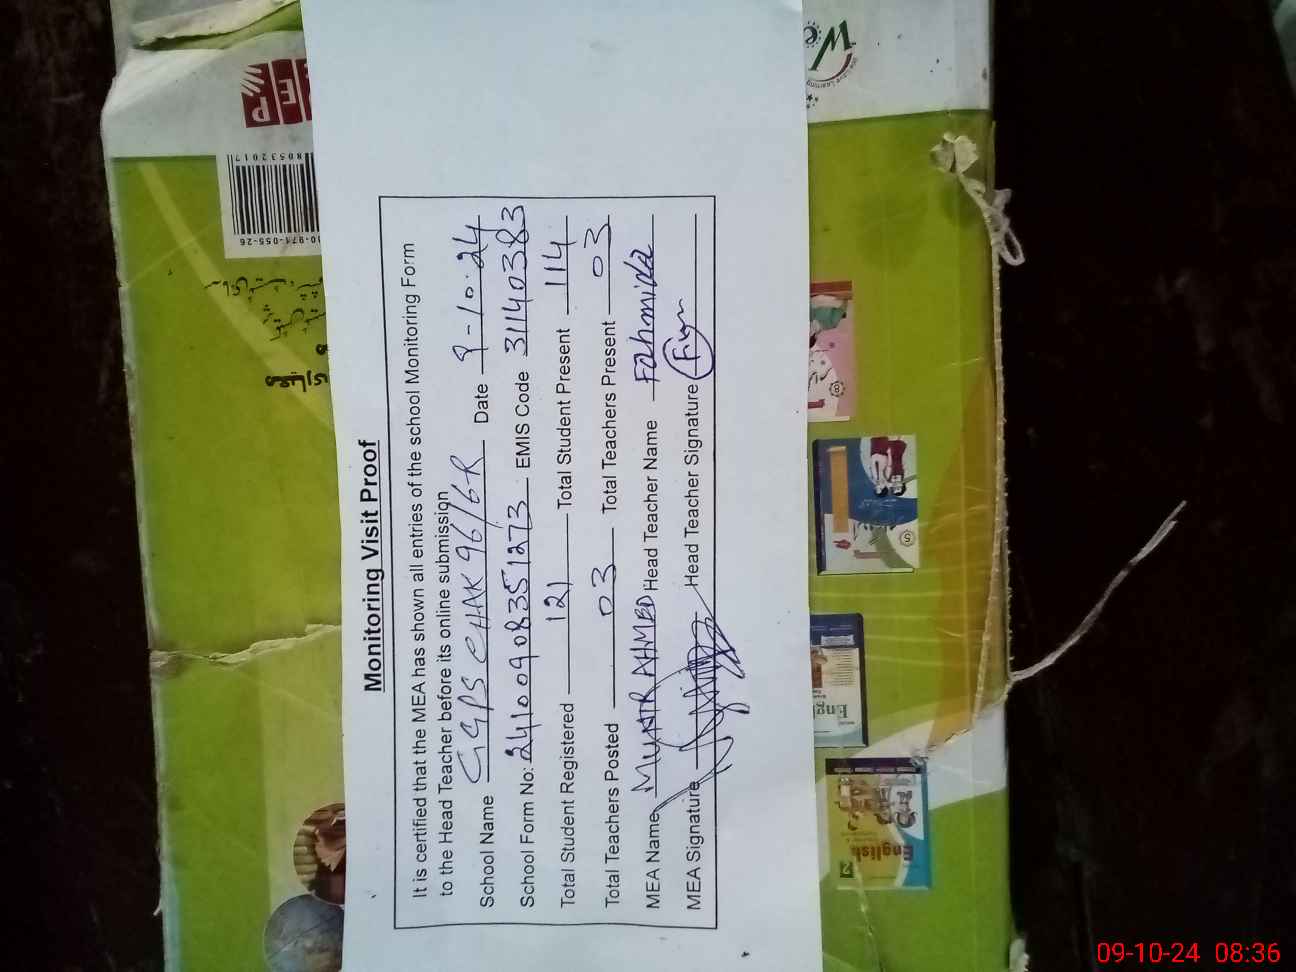 Monitoring Visit Proof
It is certified that the MEA has shown all entries of the school Monitoring Form
to the Head Teacher before its online submission
School Name GGPS CHAK 96/6R Date 9-10-24
School Form No: 241009083551273 EMIS Code 31140383
Total Student Registered 121 Total Student Present 114
Total Teachers Posted 03 Total Teachers Present 03
MEA Name MUNIR AHMED Head Teacher Name Fahmida
MEA Signature Head Teacher Signature
PEP
80532017
English
2
5
8
09-10-24 08:36